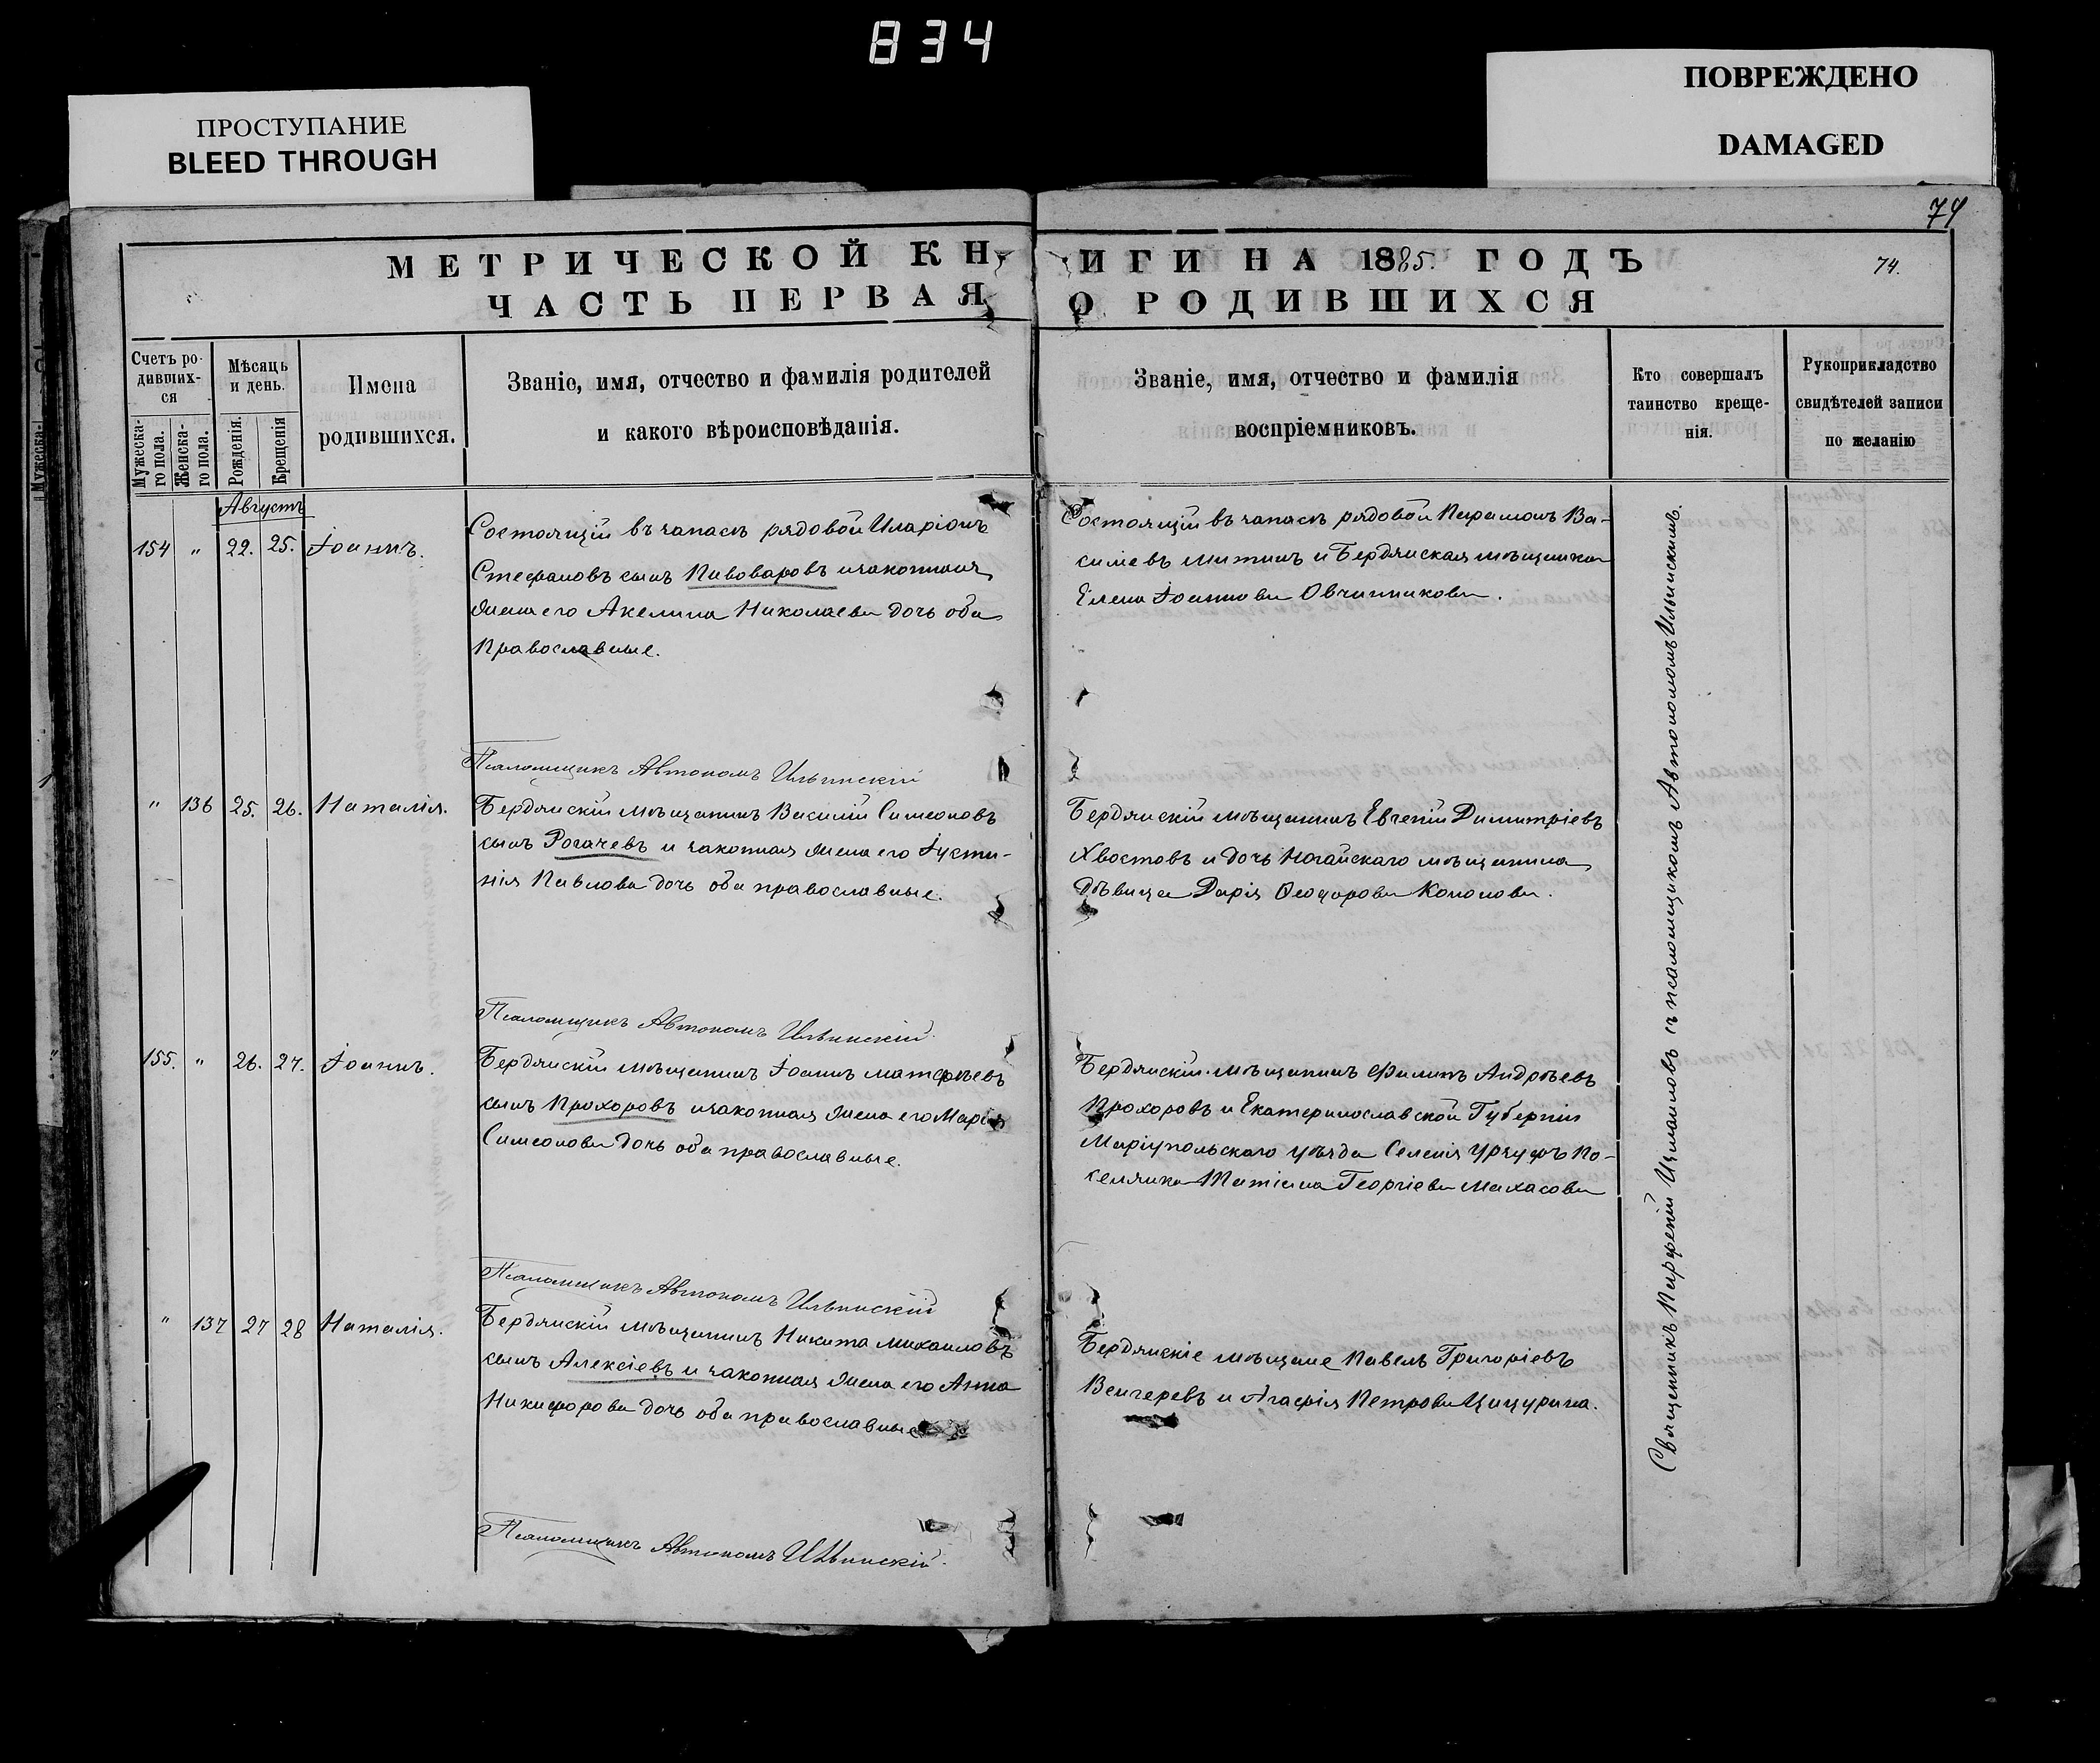 834
ПРОСТУПАНИЕ
BLEED THROUGH
ПОВРЕЖДЕНО
DAMAGED
74
МЕТРИЧЕСКОЙ КНИГИ НА 1885. ГОДЪ
74.
ЧАСТЬ ПЕРВАЯ О РОДИВШИХСЯ
Счетъ ро-
дивших-
ся
Мужеска-
го пола.
Женска-
го пола.
Мѣсяць
и день.
Рожденія.
Крещенія
Имена
родившихся.
Званіе, имя, отчество и фамилія родителей
и какого вѣроисповѣданія.
Званіе, имя, отчество и фамилія
воспріемниковъ.
Кто совершалъ
таинство креще-
нія.
Рукоприкладство
свидѣтелей записи
по желанію
Августъ
154 " 22. 25. Іоаннъ.
Состоящій въ запасѣ рядовой Иларіонъ
Стефановъ сынъ Пивоваровъ и законная
жена его Акелина Николаева дочь оба
Православные.
Состоящій въ запасѣ рядовой Парамонъ Ва-
силіевъ Митинъ и Бердянская мѣщанка
Елена Іоаннова Овчинникова.
Псаломщикъ Автономъ Ильинскій
" 136 25. 26. Наталія.
Бердянскій мѣщанинъ Василій Симеоновъ
сынъ Рогачевъ и законная жена его Іусти-
нія Павлова дочь оба православные.
Бердянскій мѣщанинъ Евгеній Димитріевъ
Хвостовъ и дочь Ногайскаго мѣщанина
Дѣвица Дарія Ѳеодорова Кононова.
Псаломщикъ Автономъ Ильинскій.
155. " 26. 27. Іоаннъ.
Бердянскій мѣщанинъ Іоаннъ Матѳѣевъ
сынъ Прохоровъ и законная жена его Марія
Симеонова дочь оба православные.
Бердянскій мѣщанинъ Филипъ Андрѣевъ
Прохоровъ и Екатеринославской Губерніи
Маріупольскаго уѣзда Селенія Урзуфъ По-
селянка Татіана Георгіева Махасова
Псаломщикъ Автономъ Ильинскій
" 137 27 28 Наталія.
Бердянскій мѣщанинъ Никита Михаиловъ
сынъ Алексіевъ и законная жена его Анна
Никифорова дочь оба православные
Бердянскіе мѣщане Павелъ Григоріевъ
Венгеревъ и Агафія Петрова Цицурина.
Псаломщикъ Автономъ Ильинскій.
Священникъ Парфеній съ псаломщикомъ Автономомъ Ильинскимъ.